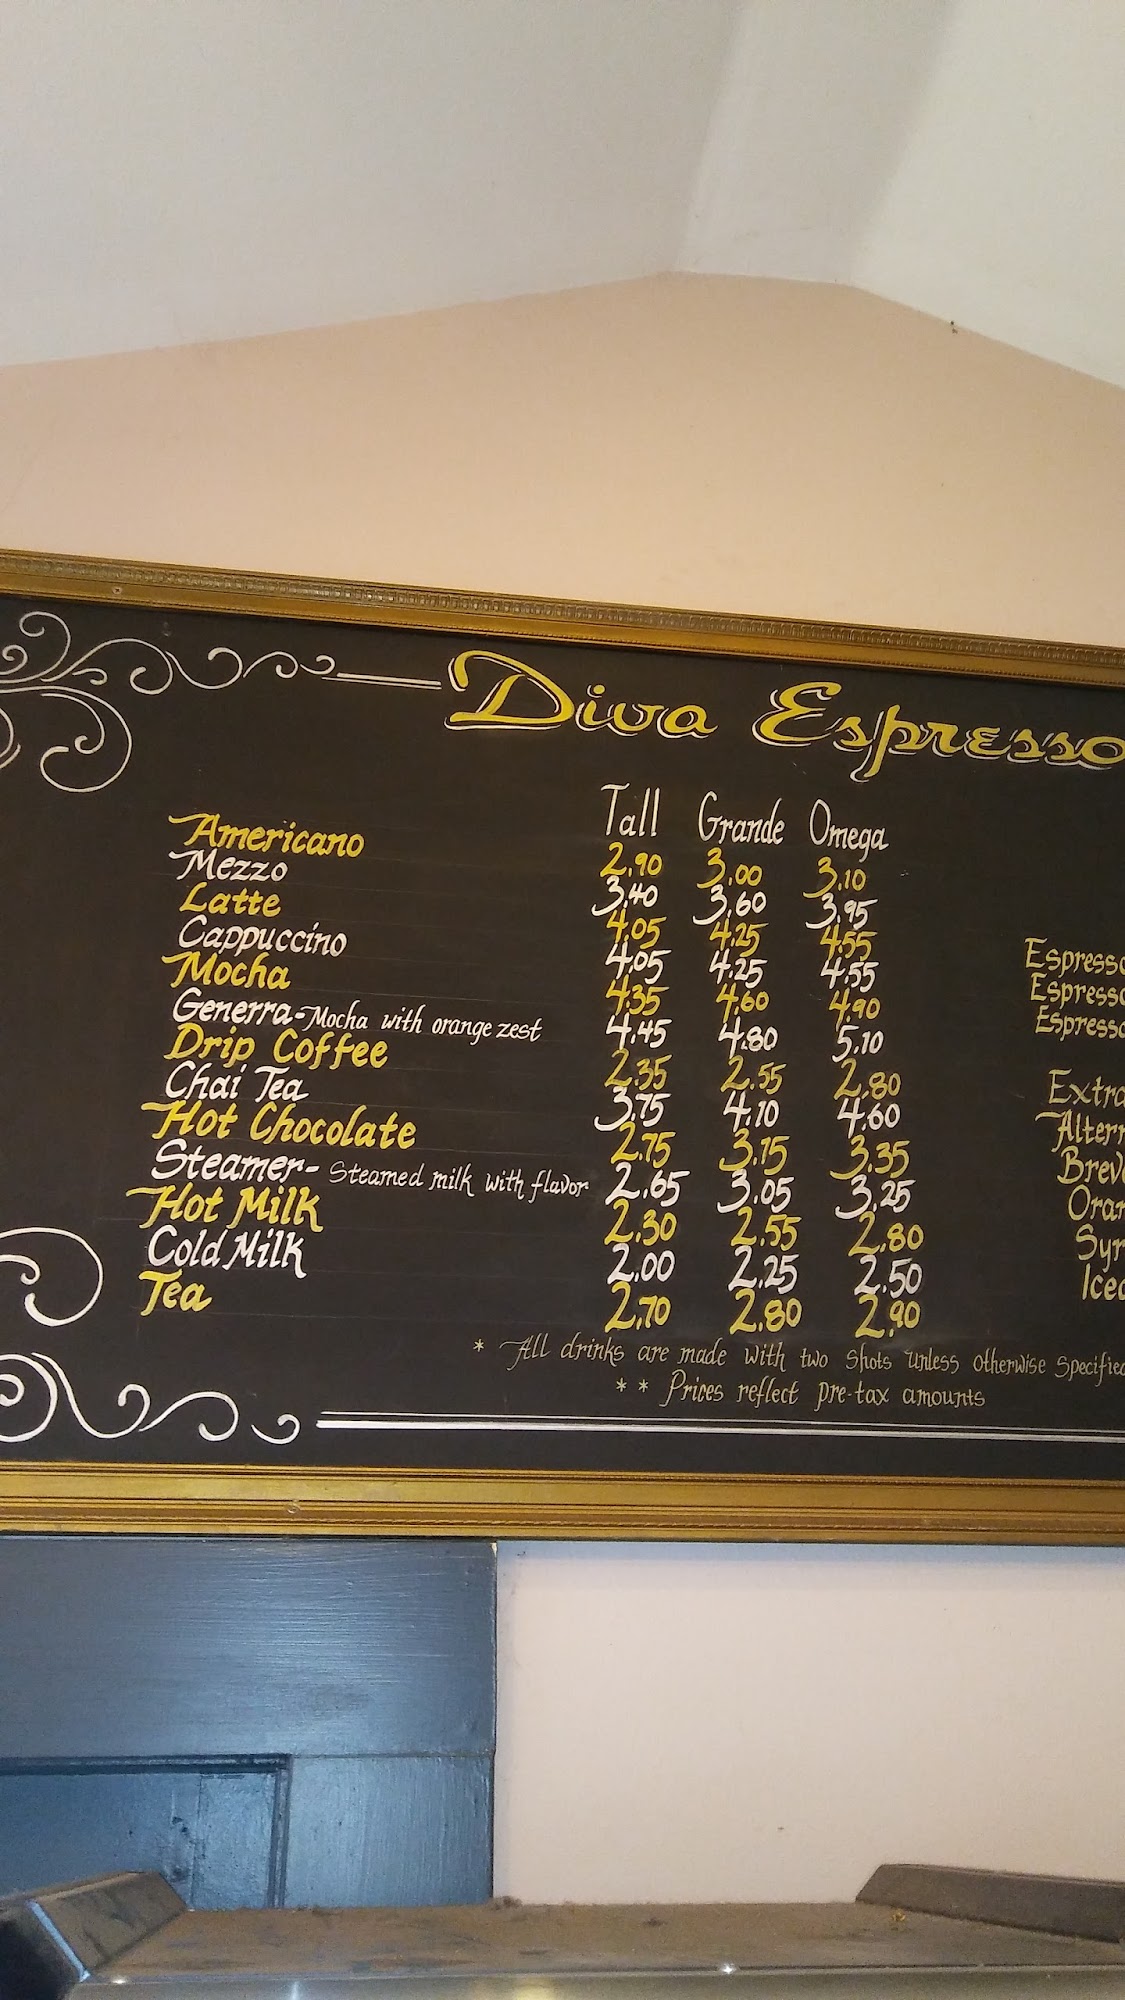 Diva Espresso
Tall Grande Omega
Americano 2.90 3.00 3.10
Mezzo 3.40 3.60 3.95
Latte 4.05 4.25 4.55
Cappuccino 4.05 4.25 4.55
Mocha 4.35 4.60 4.90
Generra-Mocha with orange zest 4.45 4.80 5.10
Drip Coffee 2.35 2.55 2.80
Chai Tea 3.75 4.10 4.60
Hot Chocolate 2.75 3.15 3.35
Steamer- Steamed milk with flavor 2.65 3.05 3.25
Hot Milk 2.30 2.55 2.80
Cold Milk 2.00 2.25 2.50
Tea 2.70 2.80 2.90
Espresso
Espresso
Espresso
Extra
Altern
Breve
Oran
Syr
Iced
* All drinks are made with two shots unless otherwise specified
** Prices reflect pre-tax amounts